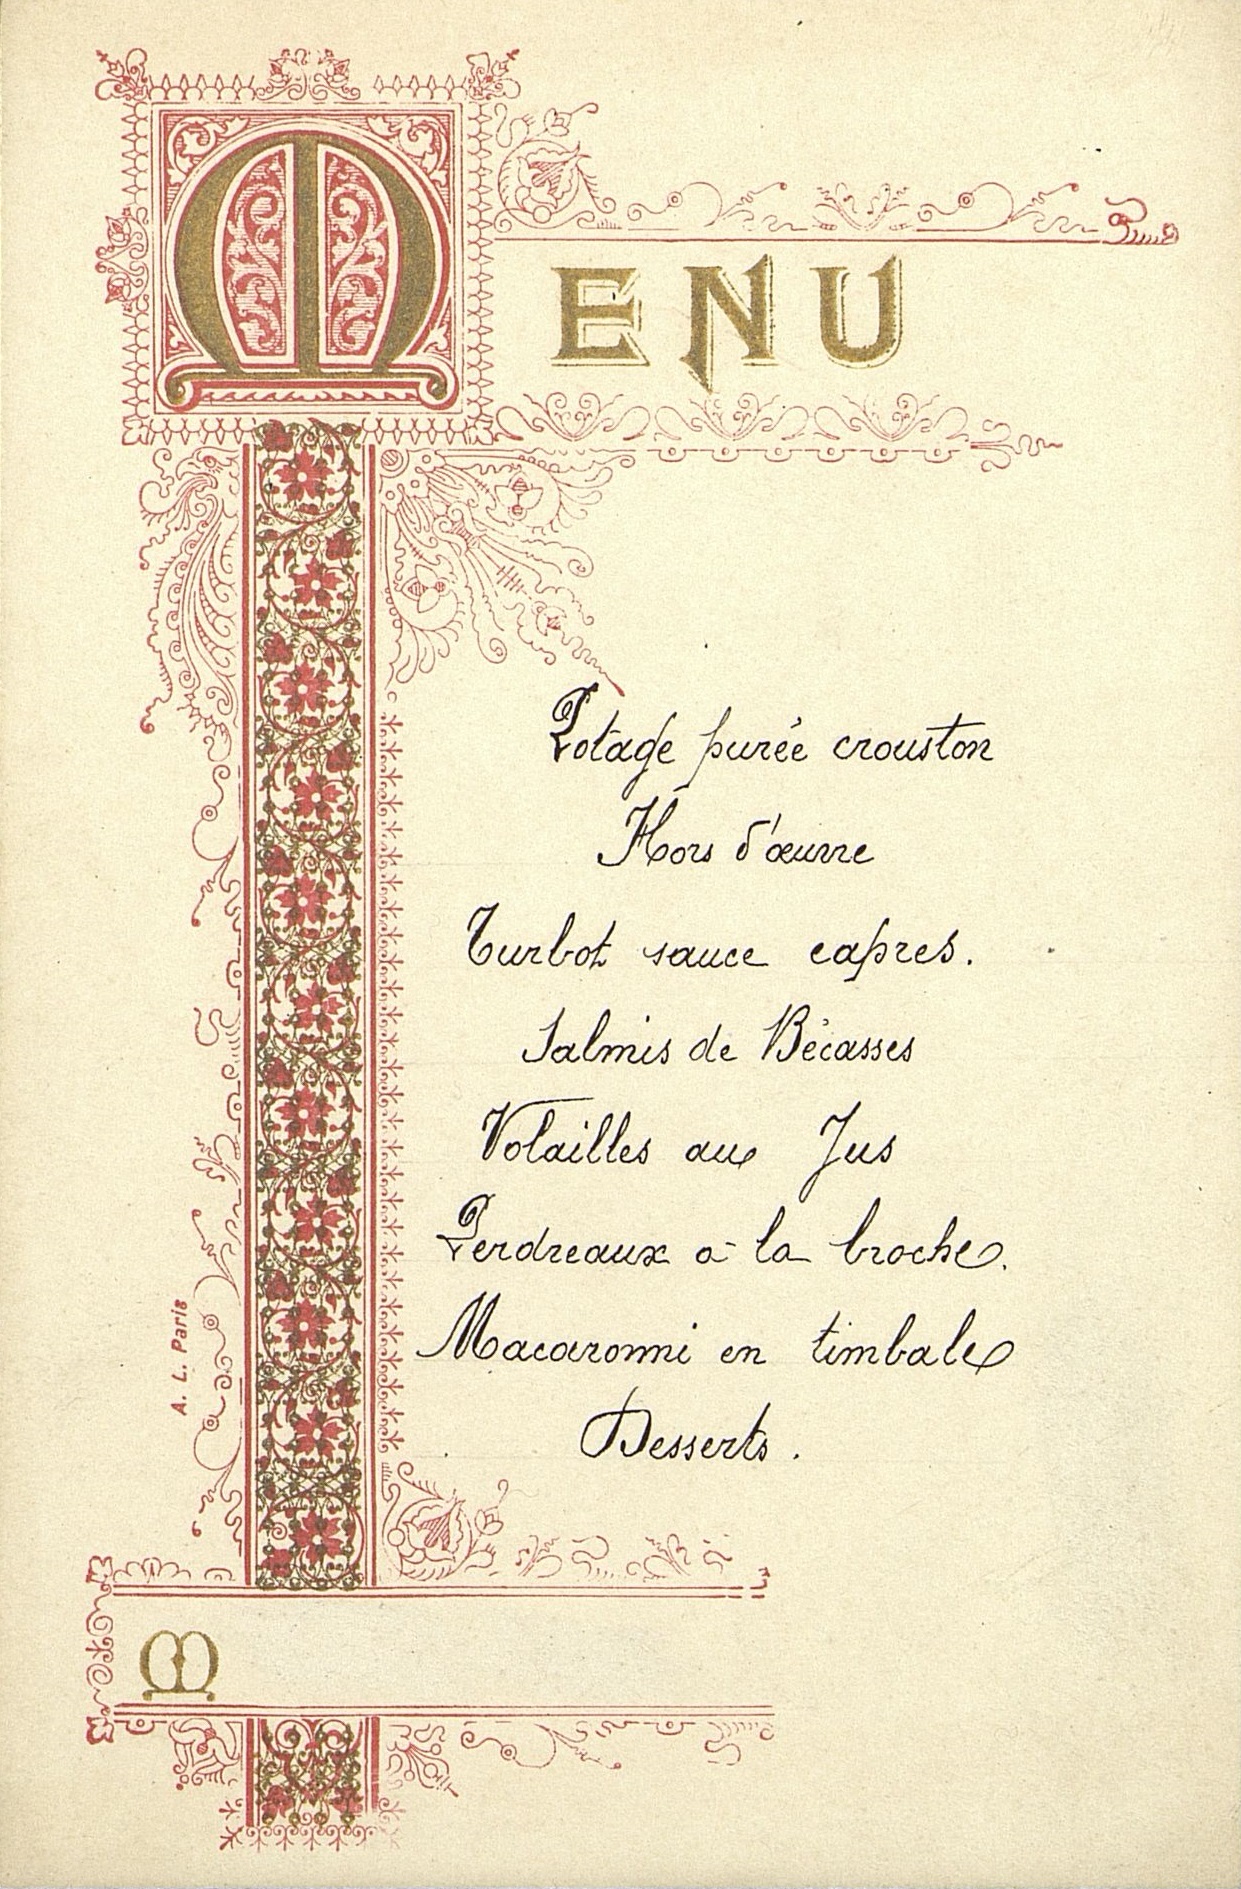 MENU
Potage purée crouston
Hors d'œuvre
Turbot sauce capres.
Salmis de Bécasses
Volailles au Jus
Perdreaux a la broche.
Macaronni en timbale
Desserts.
A. L. Paris
M